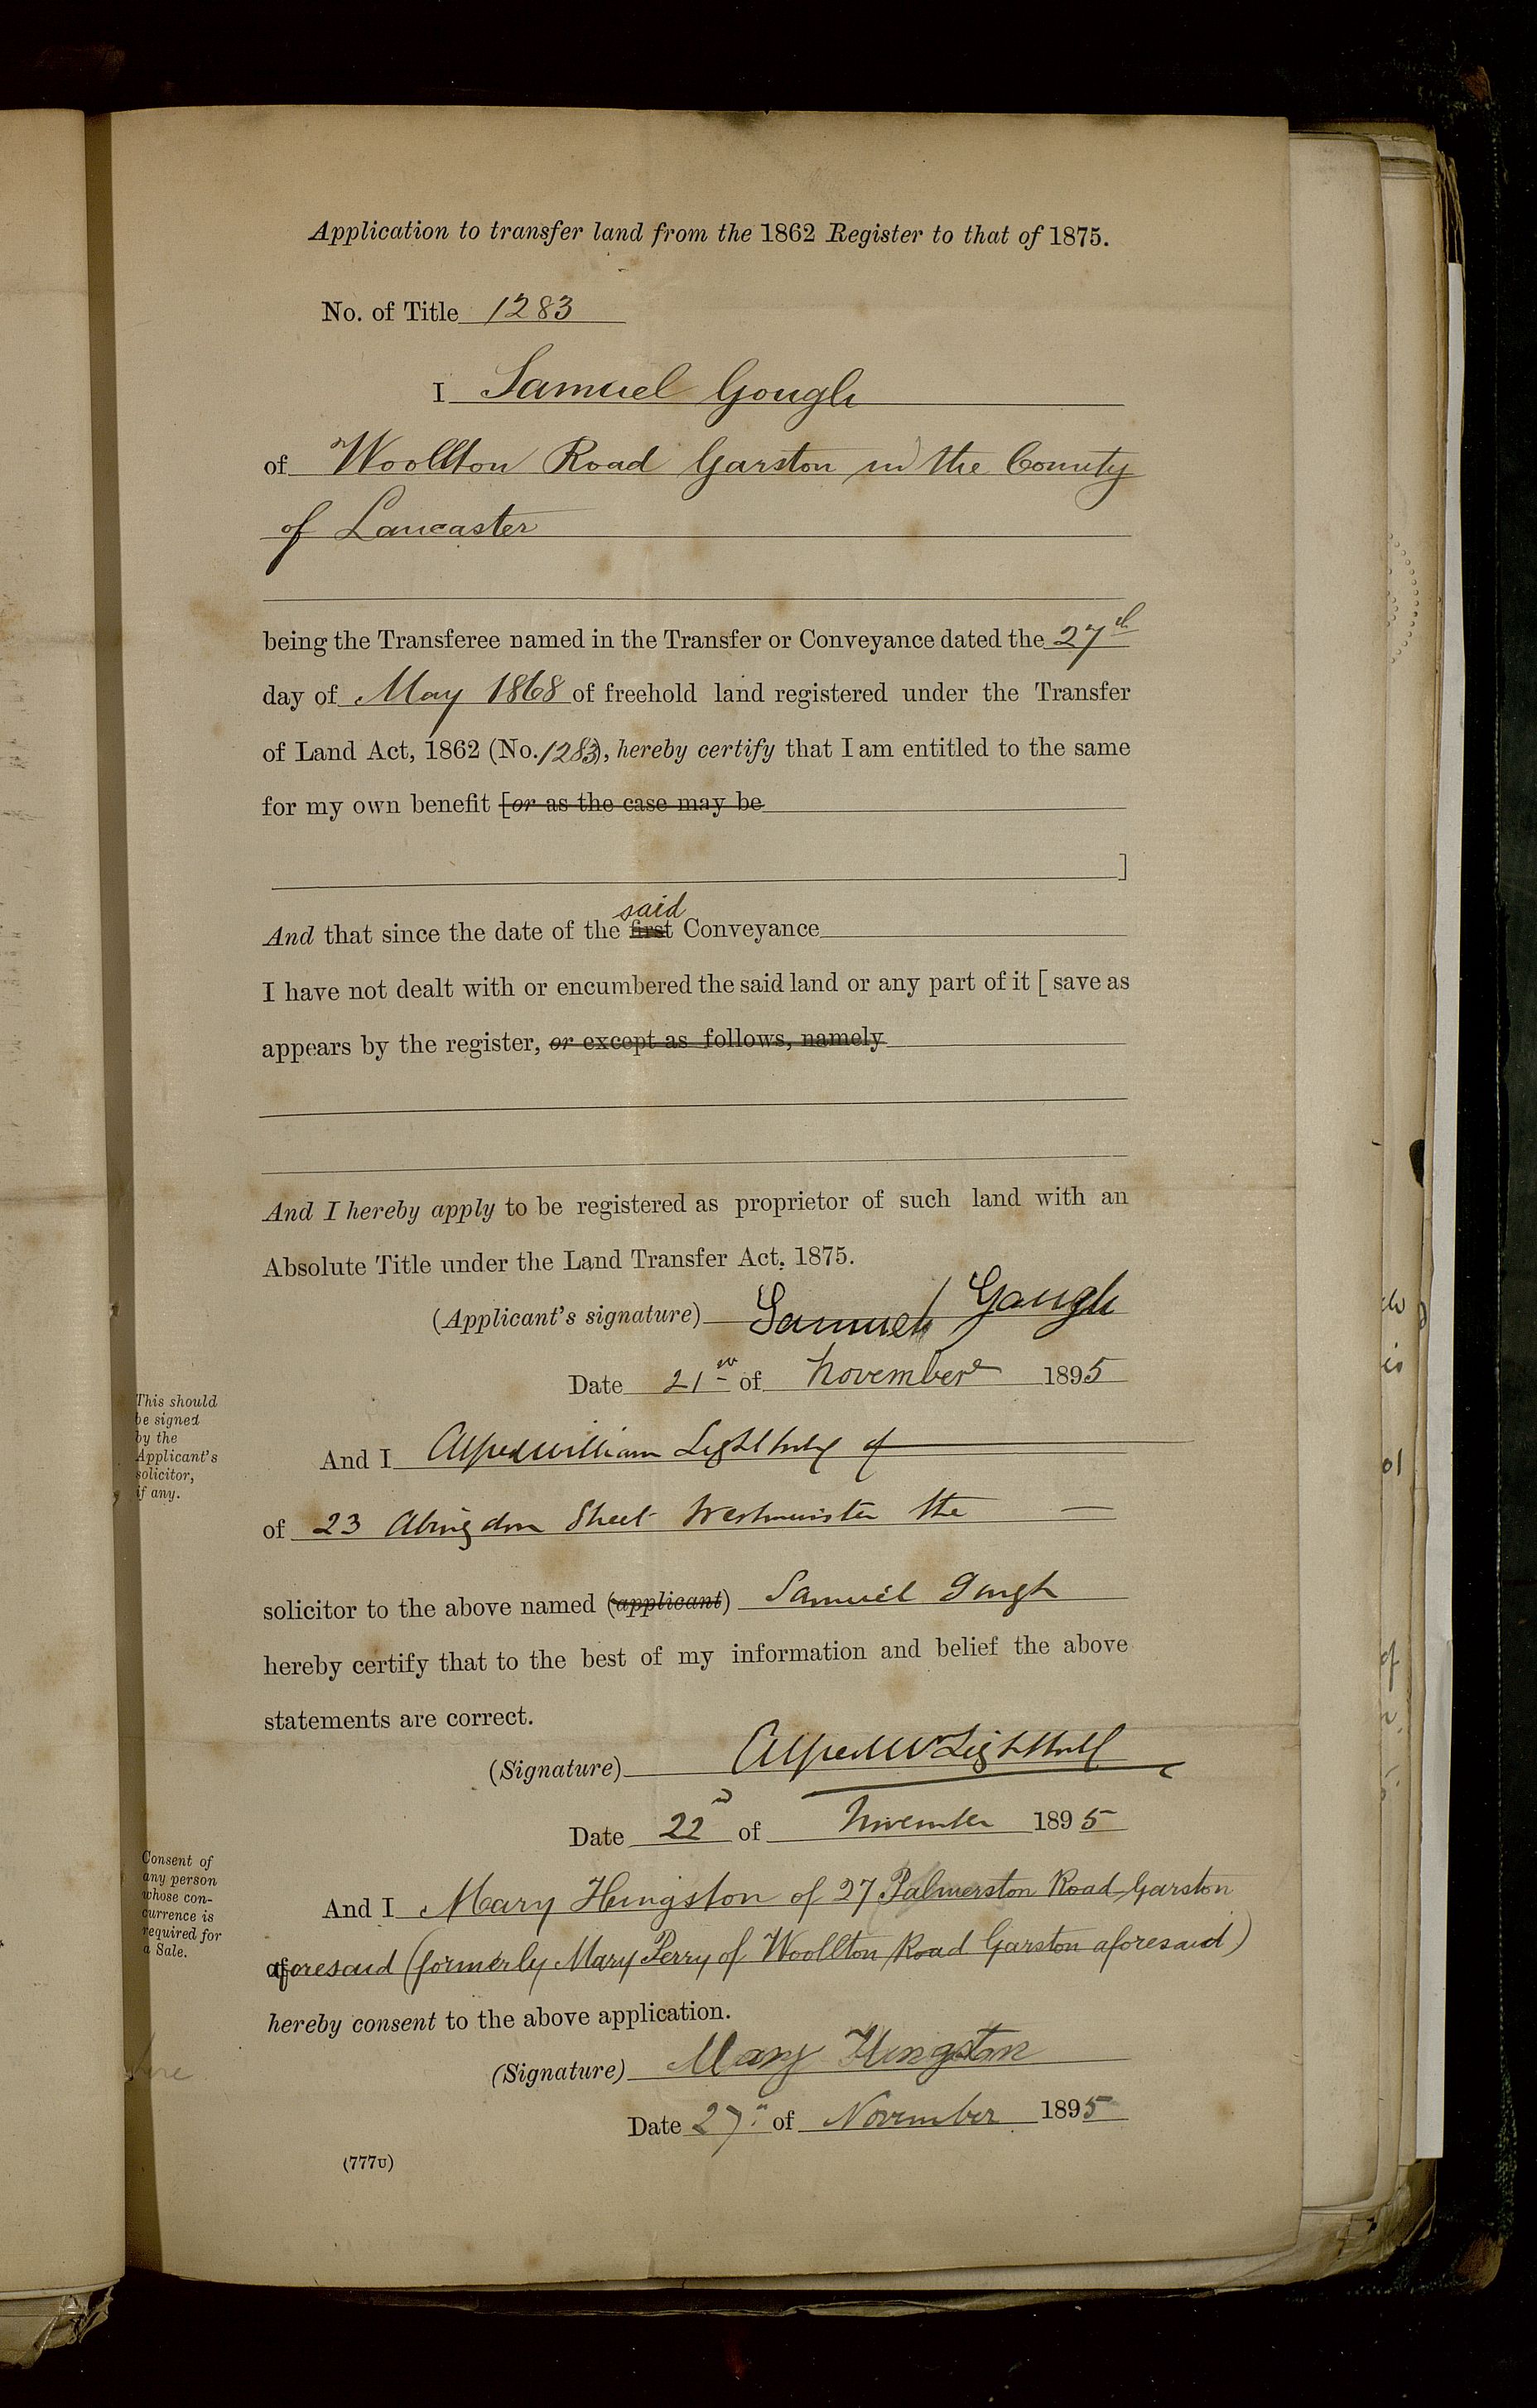 Application to transfer land from the 1862 Register to that of 1875.
No. of Title 1283
I Samuel Gough
of Woollton Road Garston in the County
of Lancaster
being the Transferee named in the Transfer or Conveyance dated the 27th
day of May 1868 of freehold land registered under the Transfer
of Land Act, 1862 (No. 1283), hereby certify that I am entitled to the same
for my own benefit [or as the case may be
]
said
And that since the date of the first Conveyance
I have not dealt with or encumbered the said land or any part of it [ save as
appears by the register, or except as follows, namely
And I hereby apply to be registered as proprietor of such land with an
Absolute Title under the Land Transfer Act, 1875.
(Applicant's signature) Samuel Gough
Date 21st of November 1895
This should
be signed
by the
Applicant's
solicitor,
if any.
And I Alfred William of
of 23 Abingdon Street Westminster the
solicitor to the above named (applicant) Samuel Gough
hereby certify that to the best of my information and belief the above
statements are correct.
(Signature) Alfred W
Date 22nd of November 1895
Consent of
any person
whose con-
currence is
required for
a Sale.
And I Mary Hingston of 27 Palmerston Road Garston
aforesaid (formerly Mary Perry of Woollton Road Garston aforesaid)
hereby consent to the above application.
(Signature) Mary Hingston
Date 27th of November 1895
(777U)